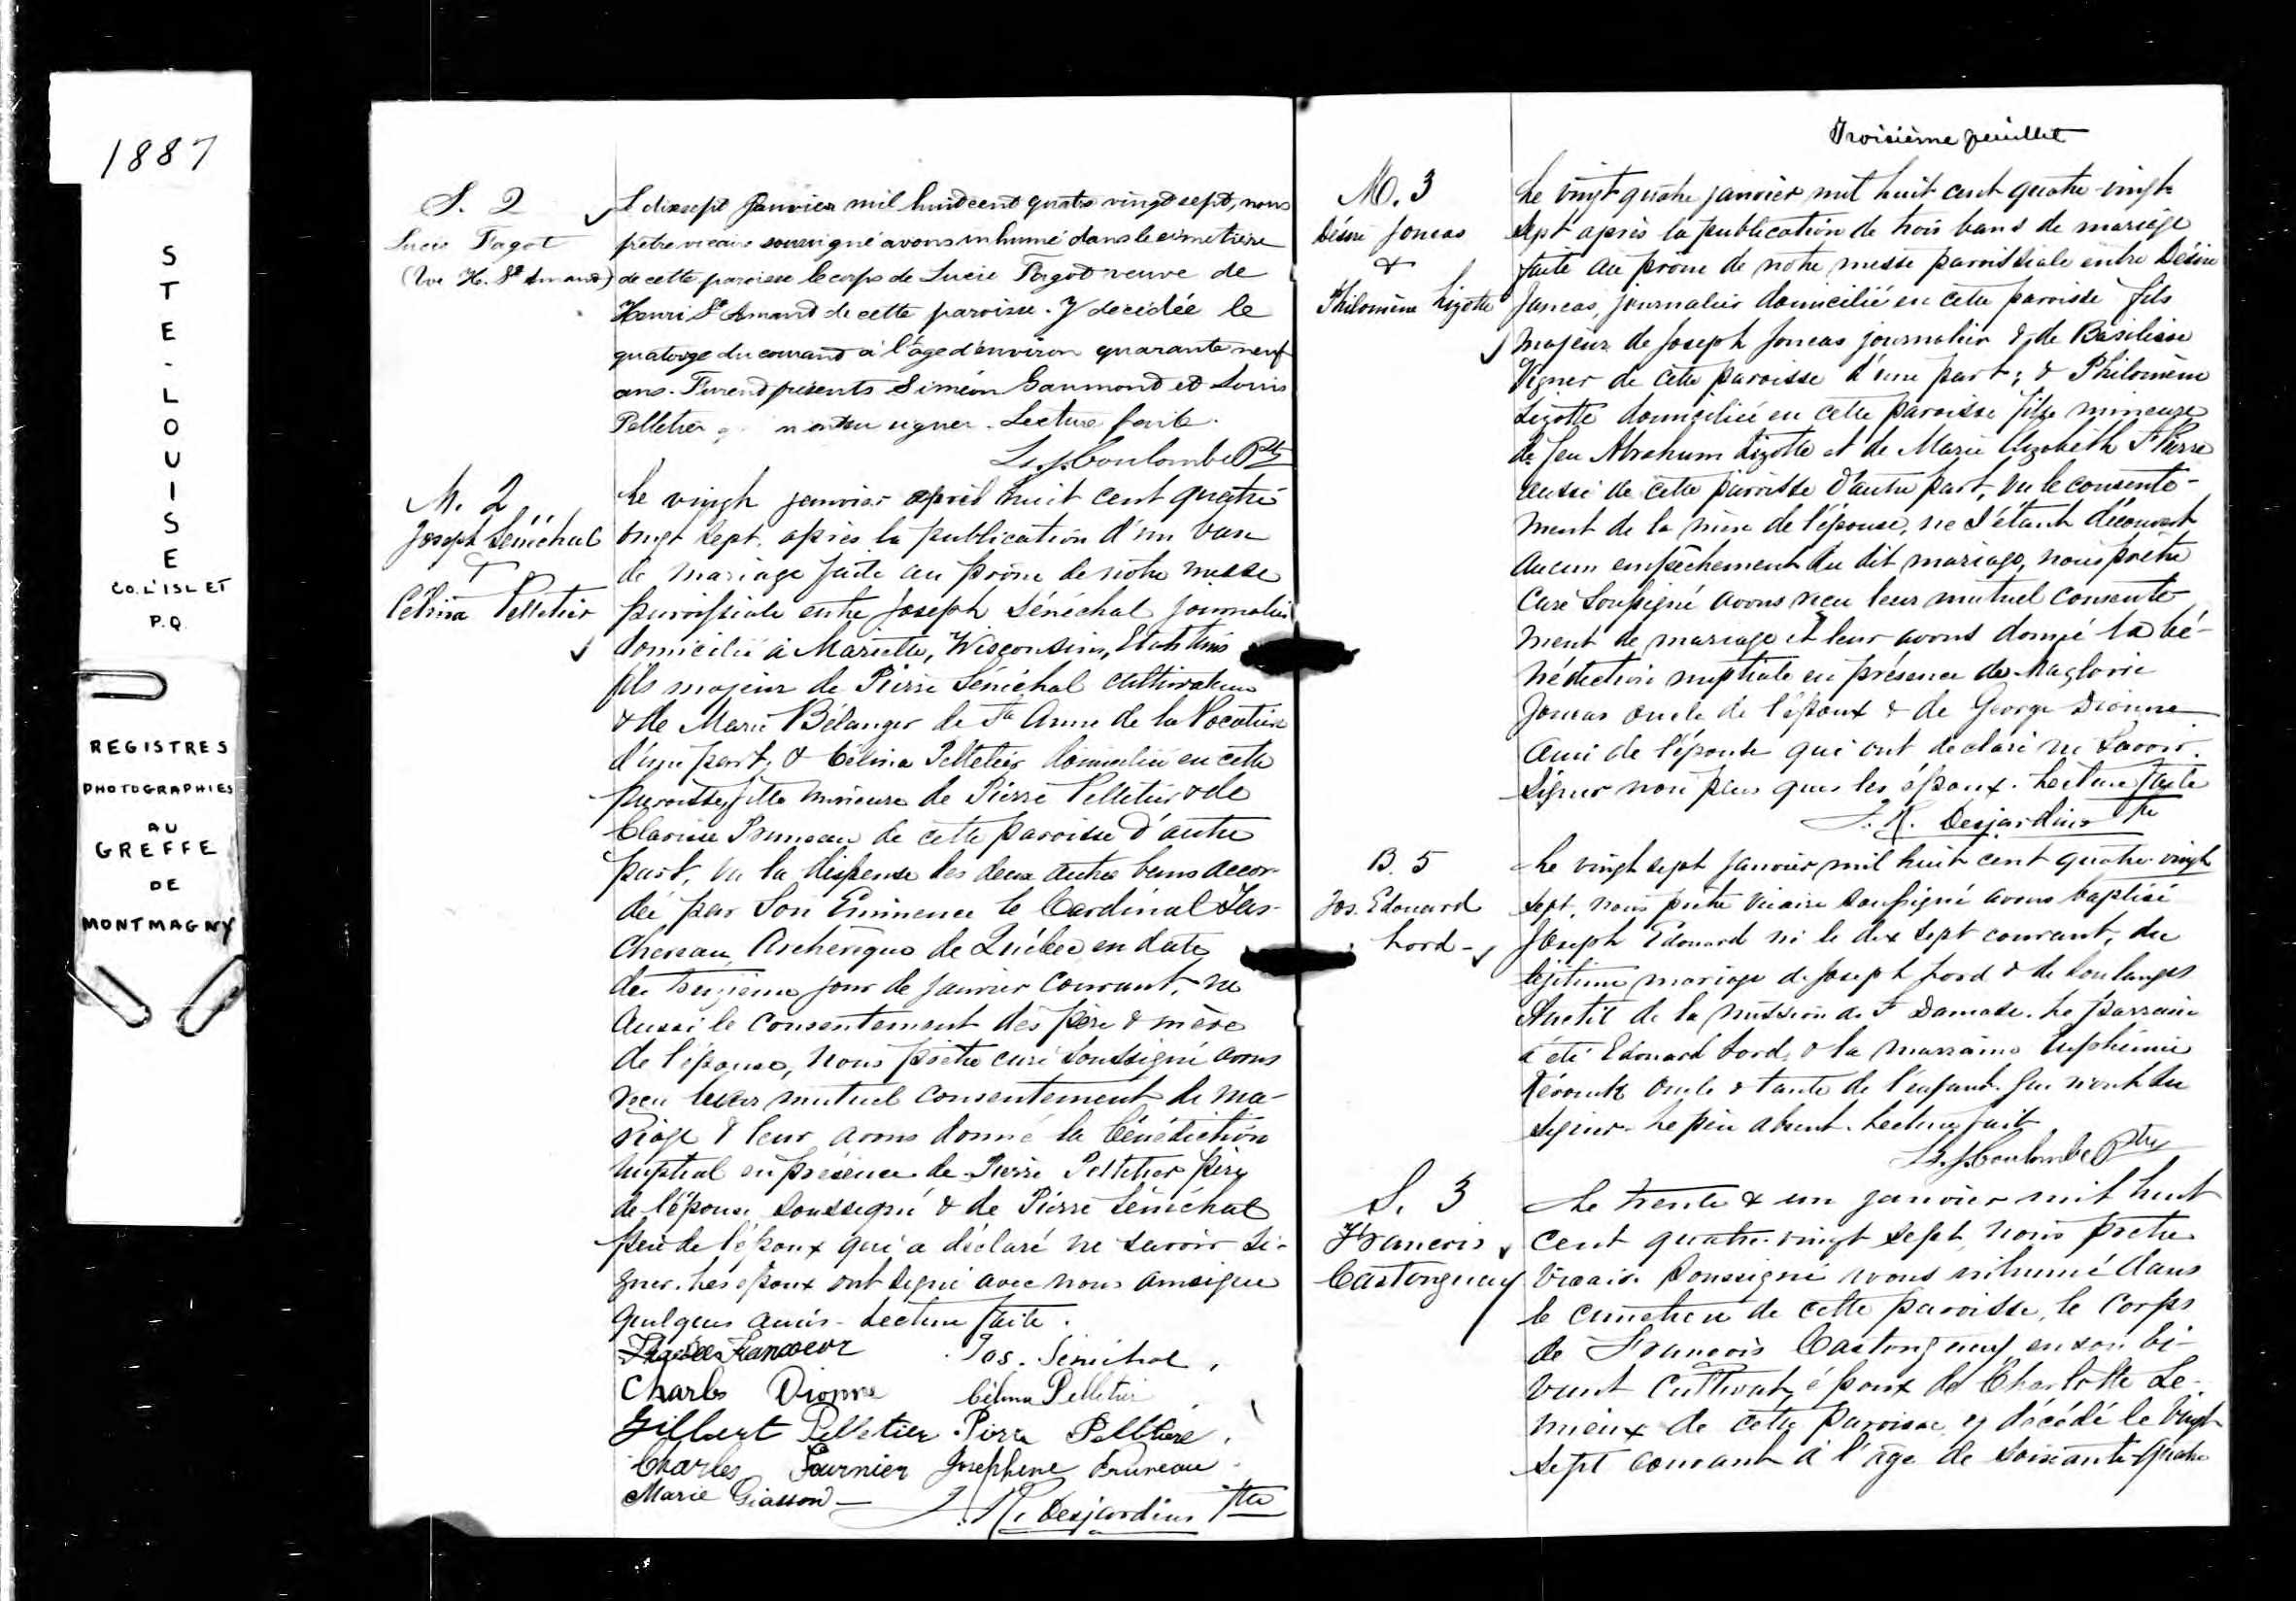 1887
STE-LOUISE
CO. L'ISLET
P.Q.
REGISTRES
PHOTOGRAPHIES
AU
GREFFE
DE
MONTMAGNY
S. 2
Lucie Fagot
(Vve H. St Amand)
L dixsept Janvier mil huit cent quatre vingt sept, nous
prêtre vicaire soussigné avons inhumé dans le cimetière
de cette paroisse le corps de Lucie Fagot veuve de
Henri St Amand de cette paroisse. Y décédée le
quatorze du courant à l'âge d'environ quarante neuf
ans. Furent présents Siméon Gaumond et Louis
Pelletier signer. Lecture faite.
Ls. J. Coulombe Ptre
M. 2
Joseph Sénéchal
&
Célina Pelletier
Le vingt janvier huit cent quatre
vingt sept, après la publication d'un ban
de mariage faite au prône de notre messe
paroissiale entre Joseph Sénéchal journalier
domicilié à Mariette, Wisconsin, Etats Unis
fils majeur de Pierre Sénéchal cultivateur
& de Marie Bélanger de Ste Anne de la Pocatière
d'une part; & Célina Pelletier domiciliée en cette
paroisse, fille mineure de Pierre Pelletier & de
Clarisse Pruneau de cette paroisse d'autre
part, vu la dispense des deux autres bans accor-
dée par Son Eminence le Cardinal Tas-
chereau, Archevêque de Québec en date
du treizième jour de janvier courant, vu
aussi le consentement des père & mère
de l'épouse, nous prêtre curé soussigné avons
reçu leur mutuel consentement de ma-
riage & leur avons donné la bénédiction
nuptial en présence de Pierre Pelletier père
de l'épouse soussigné & de Pierre Sénéchal
père de l'époux qui a déclaré ne savoir si-
gner. Les époux ont signé avec nous ainsi que
quelques amis. Lecture faite.
Francoeur Jos. Sénéchal
Charles Dionne Célina Pelletier
Gilbert Pelletier Pierre Pelltiere
Charles Fournier Josephene Pruneau
Marie Giasson
Desjardins Ptre
Troisième feuillet
M. 3
Désiré Joncas
&
Philomène Lizotte
Le vingt quatre janvier mil huit cent quatre-vingt
sept après la publication de trois bans de mariage
faite au prône de notre messe paroissiale entre Désiré
Joncas, journalier domicilié en cette paroisse fils
majeur de Joseph Joncas journalier & de Basilisse
Vigner de cette paroisse d'une part; & Philomène
Lizotte domiciliée en cette paroisse fille mineure
de feu Abraham Lizotte et de Marie Elizabeth St Pierre
aussi de cette paroisse d'autre part, vu le consente-
ment de la mère de l'épouse, ne s'étant découvert
aucun empêchement du dit mariage, nous prêtre
curé soussigné avons reçu leur mutuel consente
ment de mariage et leur avons donné la bé-
nédiction nuptiale en présence de Magloire
Joncas oncle de l'époux & de George Dionne
ami de l'épouse qui ont déclaré ne savoir
signer non plus que les époux. Lecture faite
Desjardins Ptre
B. 5
Jos. Edouard
Lord
Le vingt sept Janvier mil huit cent quatre vingt
sept, nous prêtre vicaire soussigné avons baptisé
Joseph Edouard né le dix sept courant, du
légitime mariage de Joseph Lord & de Soulanges
Anctil de la mission de St Damase. Le parrain
a été Edouard Lord & la marraine Euphémie
oncle & tante de l'enfant qui n'ont su
signer. Le père absent. Lecture fait
Ls. J. Coulombe Ptre
S. 3
Francois
Castonguay
Le trente & un janvier mil huit
cent quatre-vingt sept, nous prêtre
vicaire soussigné avons inhumé dans
le cimetière de cette paroisse, le corps
de François Castonguay en son vi-
vant cultivat. époux de Charlotte Le-
mieux de cette paroisse y décédé le vingt
sept courant à l'âge de soixante-quatre